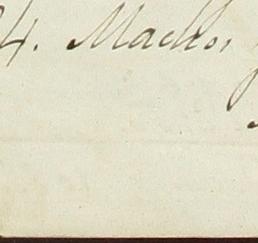 4. Macho,